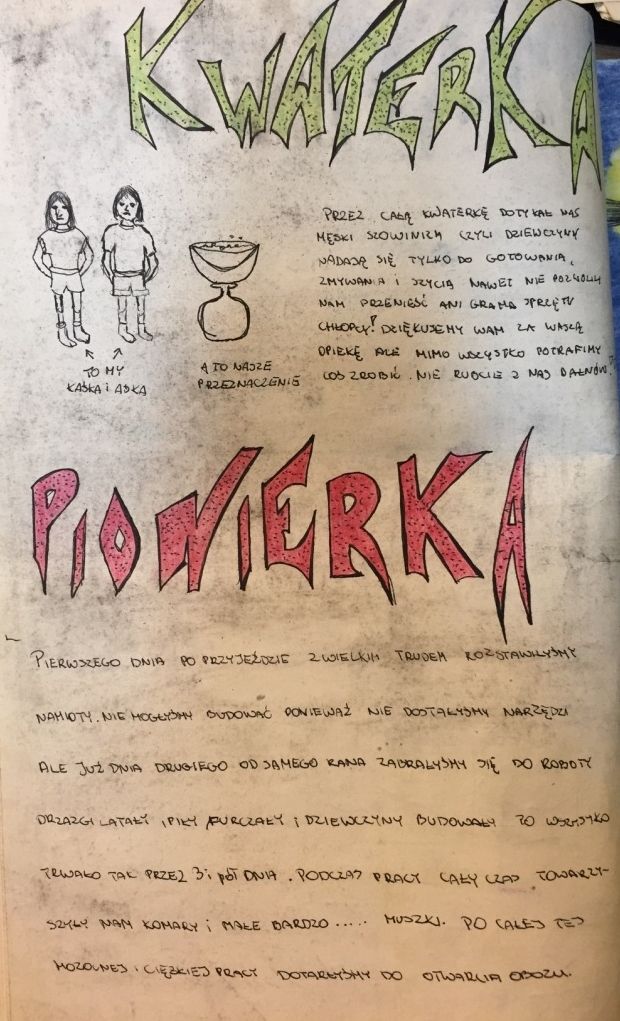 KWATERKA
PRZEZ CAŁĄ KWATERKĘ DOTYKAŁ NAS
MĘSKI SZOWINIZM CZYLI DZIEWCZYNY
NADAJĄ SIĘ TYLKO DO GOTOWANIA,
ZMYWANIA I SZYCIA NAWET NIE POZWOLILI
NAM PRZENIEŚĆ ANI GRAMA SPRZĘTU
CHŁOPCY! DZIĘKUJEMY WAM ZA WASZĄ
OPIEKĘ ALE MIMO WSZYSTKO POTRAFIMY
COŚ ZROBIĆ. NIE RÓBCIE Z NAS
TO MY
KAŚKA I AŚKA
A TO NASZE
PRZEZNACZENIE
PIONIERKA
PIERWSZEGO DNIA PO PRZYJEŹDZIE Z WIELKIM TRUDEM ROZSTAWIŁYŚMY
NAMIOTY. NIE MOGŁYŚMY BUDOWAĆ PONIEWAŻ NIE DOSTAŁYŚMY NARZĘDZI
ALE JUŻ DNIA DRUGIEGO OD SAMEGO RANA ZABRAŁYŚMY SIĘ DO ROBOTY
DRZAZGI LATAŁY, PIŁY FURCZAŁY I DZIEWCZYNY BUDOWAŁY TO WSZYSTKO
TRWAŁO TAK PRZEZ 3 i pół DNIA. PODCZAS PRACY CAŁY CZAS TOWARZY-
SZYŁY NAM KOMARY i MAŁE BARDZO ..... MUSZKI. PO CAŁEJ TEJ
MOZOLNEJ i CIĘŻKIEJ PRACY DOTARŁYŚMY DO OTWARCIA OBOZU.